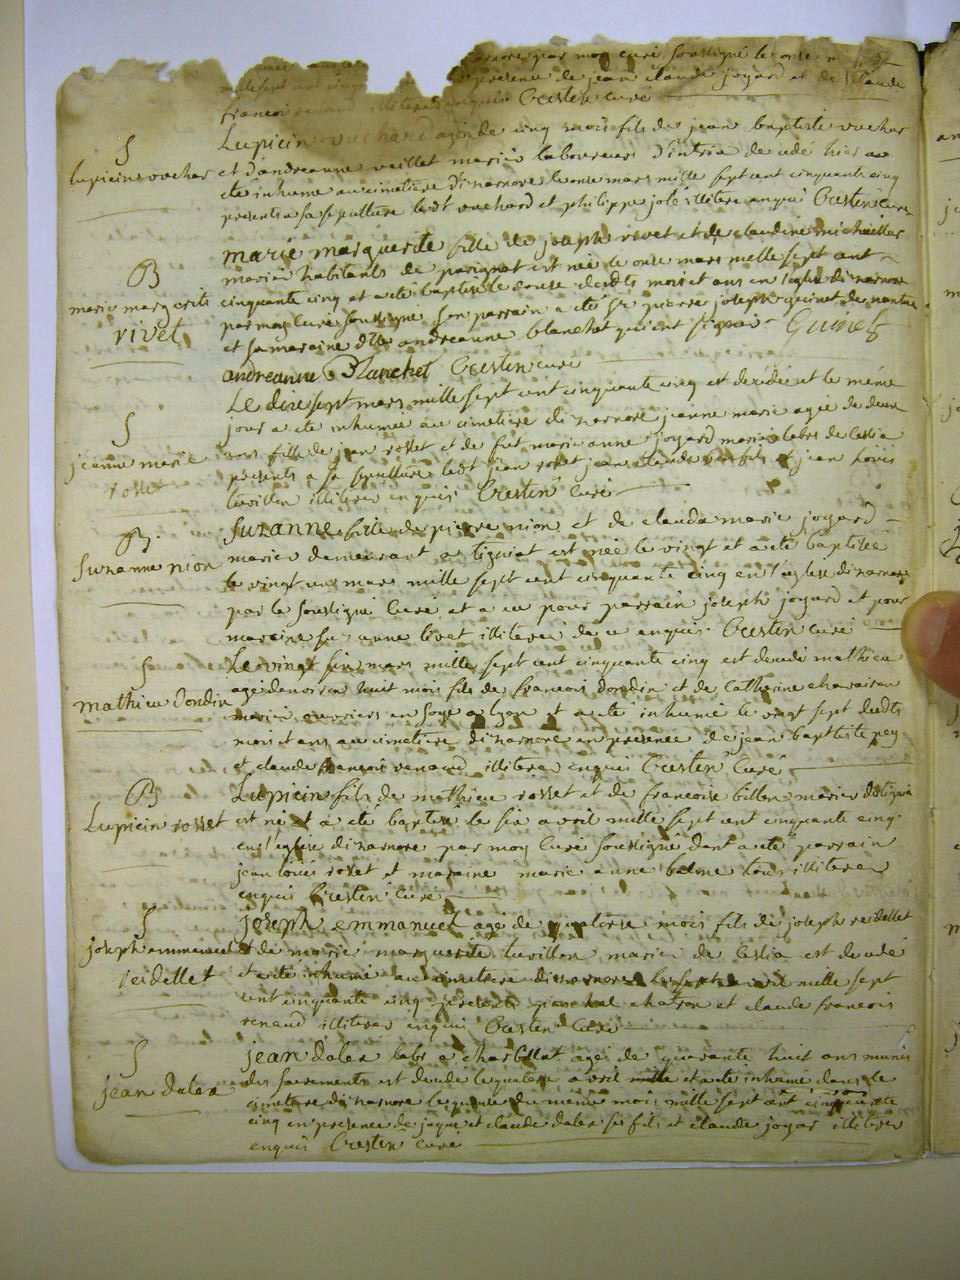 par moy curé soussigné le onse
presence de jean claude joyard et de claude
françois enquis Crestin curé
S
lupicin vuchar
Lupicin vuchard agé de cinq mois fils de jean baptiste vuchar
et d'andreanne vaillet mariés laboureurs d'intria decedé hier a
ete inhumé au cimetiere d'izarnore le onse mars mille sept cent cinquante cinq
presents a sa sepulture ledt vuchard et philippe jolé illiteré enquis Crestin curé
B
marie margerite
rivet
marie marguerite fille de joseph rivet et de claudine michaillet
mariés habitants de perignat est née le onse mars mille sept cent
cinquante cinq et a eté baptisé le douse desdts mois et ans en l'eglise d'izarnore
par moy curé soussigné son parrain a eté sr pierre joseph guinet de nantua
et sa maraine dlle andreanne blanchet qui ont signés Guinet
andreanne Blanchet Crestin curé
S
jeanne marie
rosset
Le dixsept mars mille sept cent cinquante cinq et decédé et le même
jour a ete inhumée au cimetiere d'izarnore jeanne marie agée de deux
ans fille de jean rosset et de fut marie anne joyard mariés labrs de Cessia
presents a sa sepulture ledt jean rosset jean claude son fils et jean Louis
tavillon illiteres enquis Crestin curé
B
Suzanne nion
Suzanne fille de pierre nion et de clauda marie joyard
mariés demeurant a tigniat est née le vingt et a ete baptisée
le vingt un mars mille sept cent cinquante cinq en l'eglise d'izarnore
par le soussigné curé et a eu pour parrain joseph joyard et pour
maraine suzanne livet illiteré de ce enquis Crestin curé
S
mathieu dondin
Le vingt six mars mille sept cent cinquante cinq est decedé mathieu
agé d'environ huit mois fils de françois dondin et de Catherine
mariés ouvriers en soye a lyon et a ete inhumé le vingt sept desdts
mois et ans au cimetiere d'izarnore en presence de jean baptiste ney
et claude françois renaud illiteres enquis Crestin Curé
B
Lupicin rosset
Lupicin fils de mathieu rosset et de françoise billon mariés de tignia
est né et a ete baptisé le six avril mille sept cent cinquante cinq
en l'eglise d'izarnore par moy Curé soussigné dont a ete parrain
jean louis rosset et maraine marie anne balme tous illiteres
enquis Crestin curé
S
joseph emmanuel
reidellet
joseph emmanuel agé de quatorse mois fils de joseph reidellet
et de marie marguerite tavillon mariés de Cessia est decedé
et a ete inhumé au cimetiere d'izarnore le sept avril mille sept
cent cinquante cinq presents paschal chatron et claude françois
renaud illiteres enquis Crestin Curé
S
jean dalex
jean dalex labr a charbillat agé de quarante huit ans munis
des sacrements est decedé le quatorse avril mille et a ete inhumé dans le
cimetiere d'izarnore le quinse du meme mois mille sept cent cinquante
cinq en presence de jaque et claude dalex ses fils et claude joyar illiteres
enquis Crestin Curé